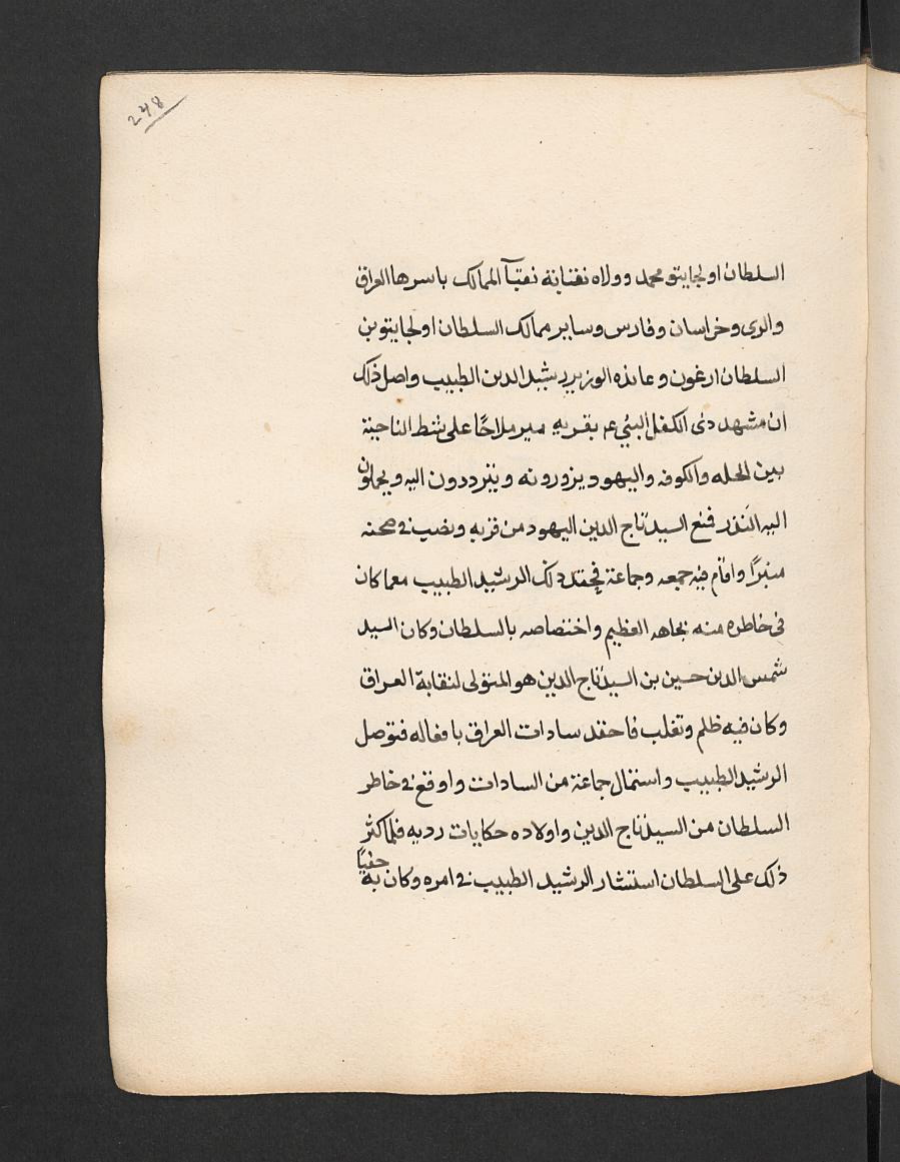 248
السلطان اولجايتو محمد وولاه نقابة نقبآ الممالك باسرها العراق
والرى وخراسان وفارس وساير ممالك السلطان اولجايتو بن
السلطان ارغون وعانده الوزير رشيد الدين الطبيب واصل ذلك
ان مشهد ذى الكفل النبي عم بقريه ميرملاحًا على شط الناجية
بين الحله والكوفه واليهود يزورونه ويترددون اليه ويحملون
اليه النذر فمنع السيد تاج الدين اليهود من قربه ونصب فى صحنه
منبرًا واقام فيه جمعه وجماعة فحقد ذلك الرشيد الطبيب معما كان
فى خاطره منه بجاهه العظيم واختصاصه بالسلطان وكان السيد
شمس الدين حسين بن السيد تاج الدين هو المتولى لنقابة العراق
وكان فيه ظلم وتغلب فاحقد سادات العراق بافعاله فتوصل
الرشيد الطبيب واستمال جماعة من السادات واوقع فى خاطر
السلطان من السيد تاج الدين واولاده حكايات رديه فلما كثر
ذلك على السلطان استشار الرشيد الطبيب فى امره وكان به حفيًا